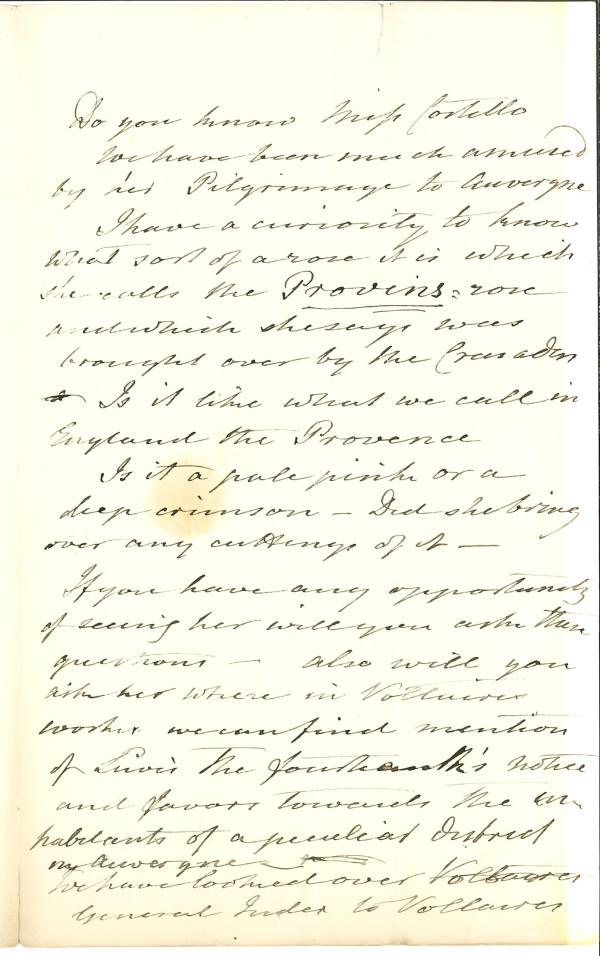 Do you know Miss Costello
We have been much amused
by her Pilgrimage to Auvergne
I have a curiosity to know
what sort of a rose it is which
she calls the Provins-rose
and which she says was
brought over by the Crusaders
Is it like what we call in
England the Provence
Is it a pale pink or a
deep crimson – Did she bring
over any cuttings of it –
If you have any opportunity
of seeing her will you ask these
questions – also will you
ask her where in Voltaires
works we can find mention
of Louis the fourteenth's notice
and favors towards the in
habitants of a peculiar district
in Auvergne
We have looked over Voltaires
General Index to Voltaires